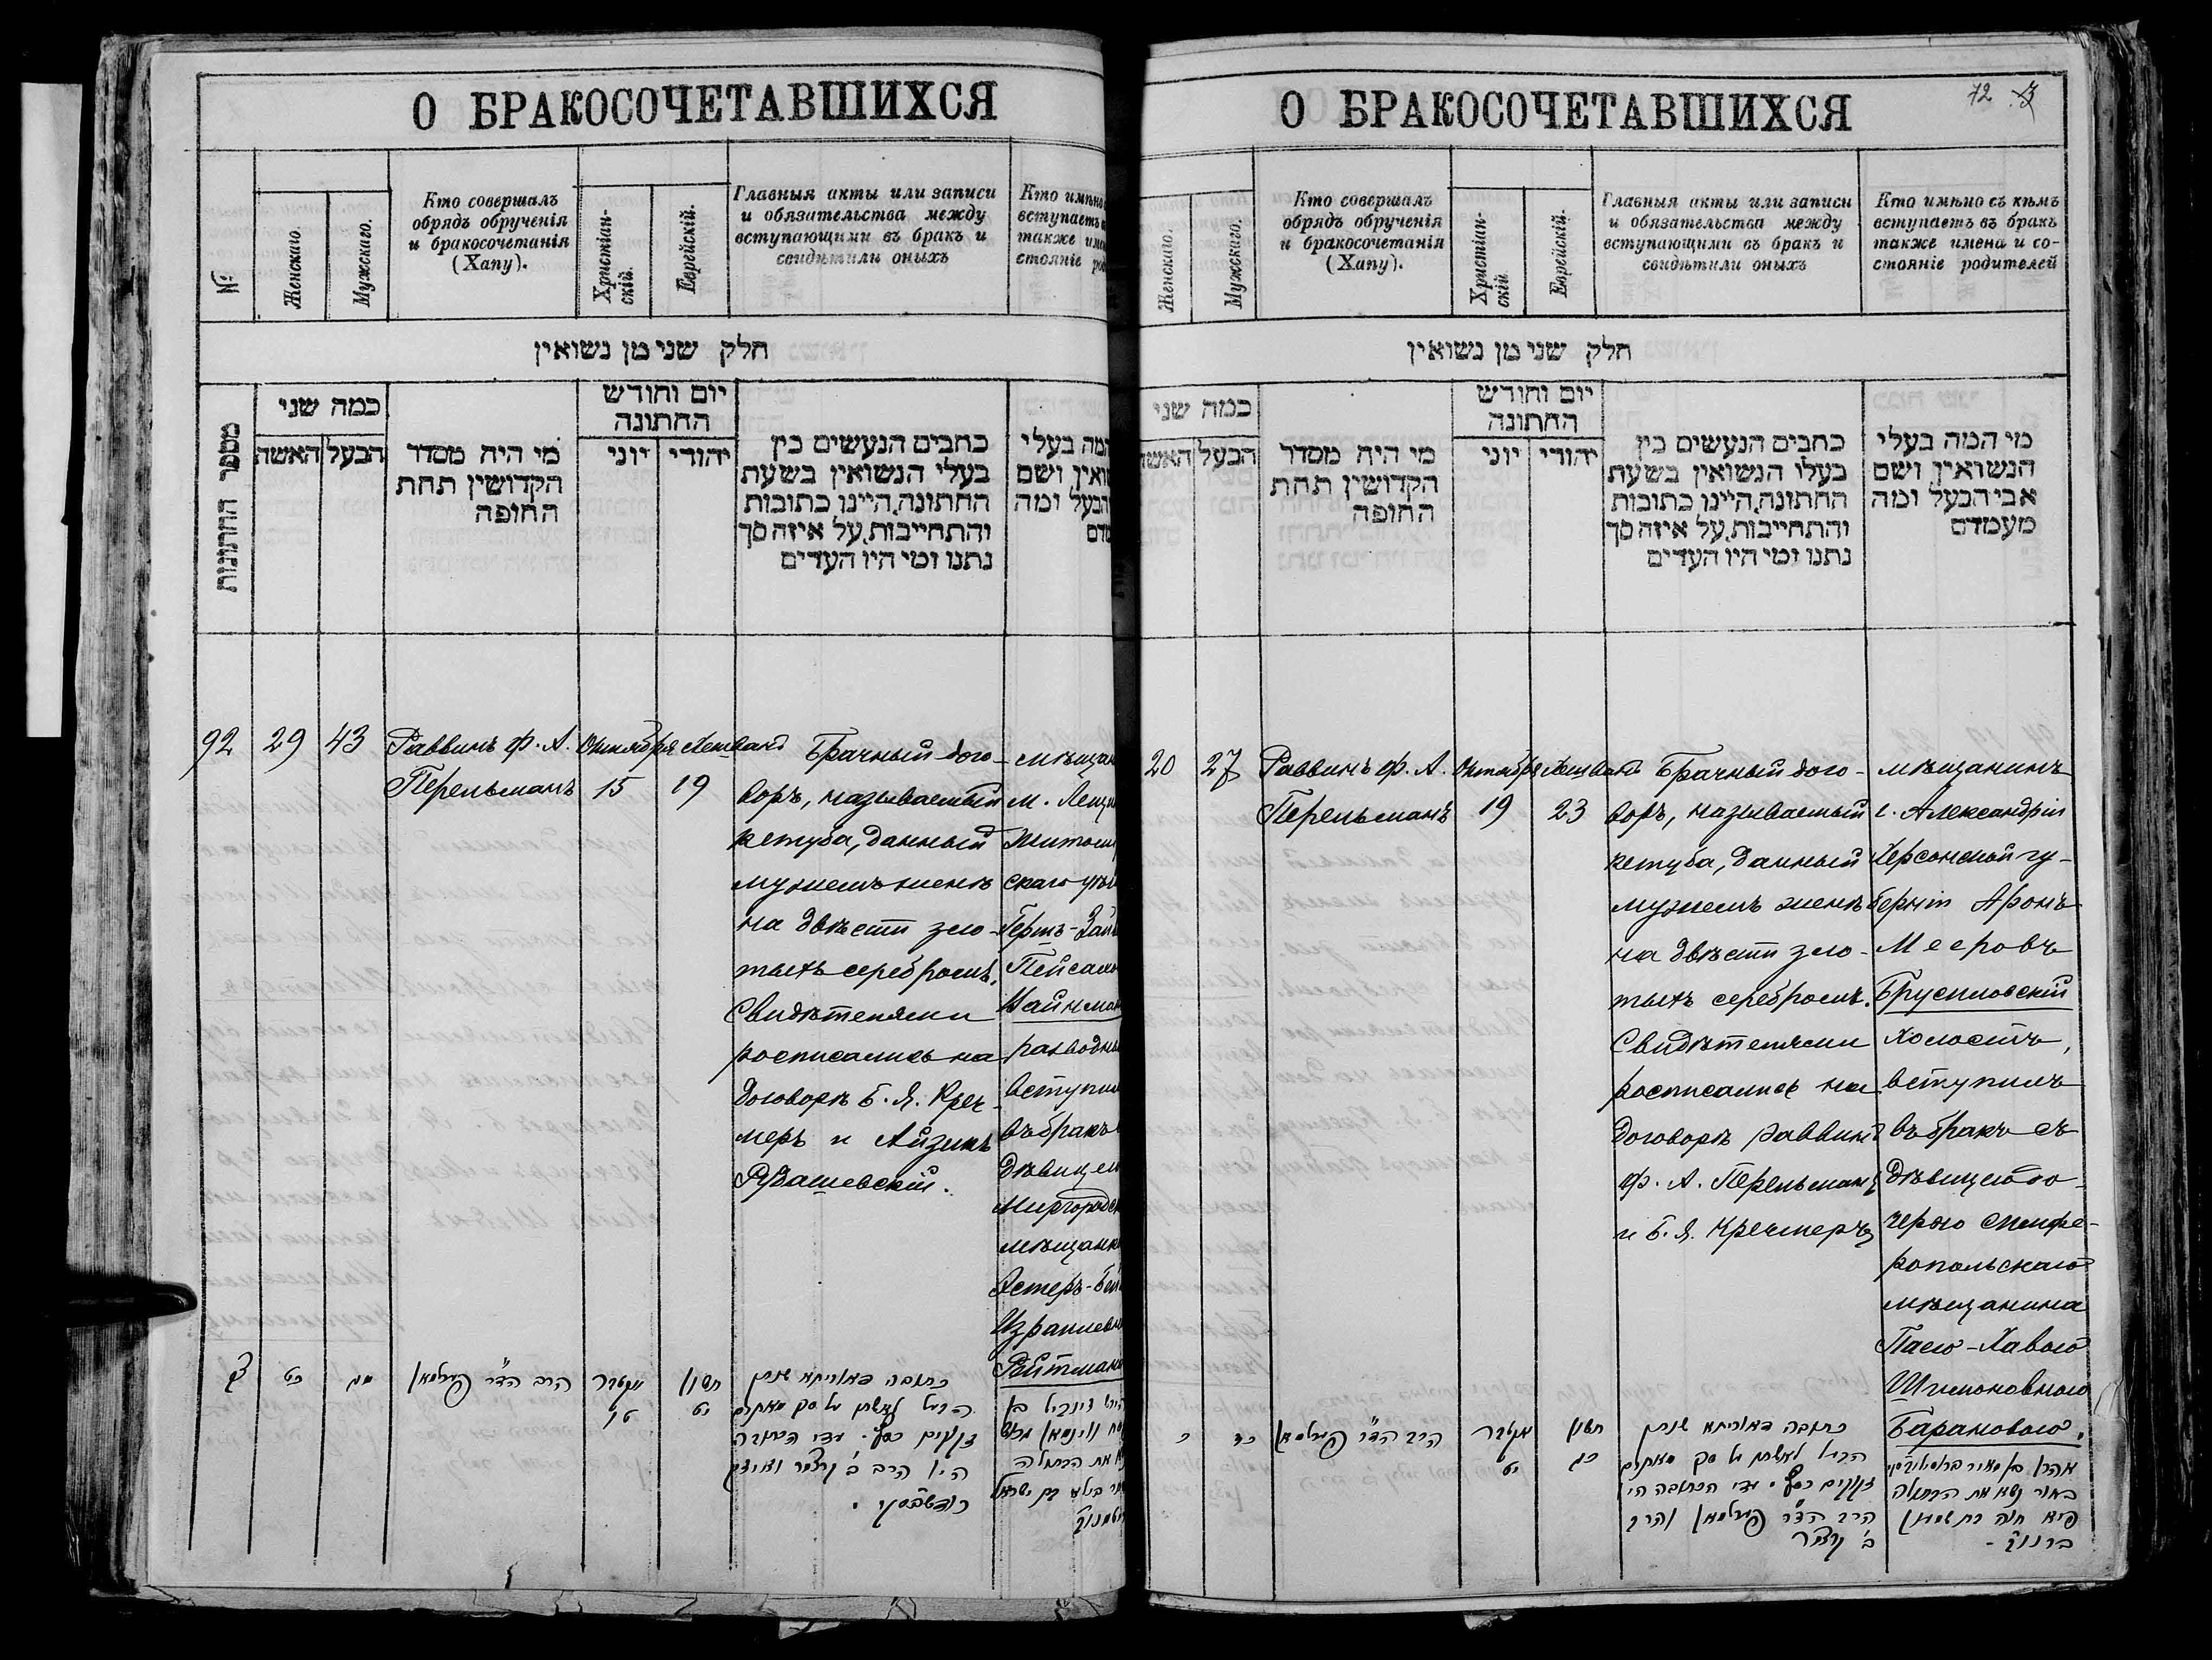 О БРАКОСОЧЕТАВШИХСЯ
№
Женскаго.
Мужскаго.
Кто совершалъ
обрядъ обрученія
и бракосочетанія
(Хапу).
Христіан-
скій.
Еврейскій.
Главныя акты или записи
и обязательства между
вступающими въ бракъ и
свидѣтили оныхъ
Кто имѣно
вступаетъ
также
стояніе
חלק שני מן נשואין
מספר החתונות
כמה שני
האשה
הבעל
מי היה מסדר
הקדושין תחת
החופה
יום וחודש
החתונה
יוני
יהודי
כתבים הנעשים בין
בעלי הנשואין בשעת
החתונה, היינו כתובות
והתחייבות, על איזה סך
נתנו ומי היו העדים
המה בעלי
ושם
הבעל ומה
92
29
43
Раввинъ Ф. А.
Перельманъ
Октября
15
Хешванъ
19
Брачный дого-
воръ, называемый
кетуба, данный
мужемъ женѣ
на двѣсти зло-
тыхъ серебромъ.
Свидѣтелями
росписались на
договорѣ Б. Я. Креч-
меръ и Айзикъ
мѣщан
м.
Житомир
скаго уѣз
Герть-
Пейсахо
Вайнман
разводны
вступил
въ бракъ
дѣвицею
Миргородск
мѣщанк
Эстеръ-
Израилевн
Рейтман
צב
כט
מג
הרב הד״ר פערלמאן
אקטבר
טו
חשון
יט
כתובה דאוריתא שנתן
הבעל לאשתו על סך מאתים
זקוקים כסף. ועדי הכתובה
היו הרב ב׳ קרצמר ואיזיק
О БРАКОСОЧЕТАВШИХСЯ
72
Женскаго.
Мужскаго.
Кто совершалъ
обрядъ обрученія
и бракосочетанія
(Хапу).
Христіан-
скій
Еврейскій.
Главныя акты или записи
и обязательства между
вступающими въ бракъ и
свидѣтили оныхъ
Кто имѣно съ кѣмъ
вступаетъ въ бракъ
также имена и со-
стояніе родителей
חלק שני מן נשואין
כמה שני
האשה
הבעל
מי היה מסדר
הקדושין תחת
החופה
יום וחודש
החתונה
יוני
יהודי
כתבים הנעשים בין
בעלו הנשואין בשעת
החתונה, היינו כתובות
והתחייבות, על איזה סך
נתנו ומי היו העדים
מי המה בעלי
הנשואין ושם
אבי הבעל ומה
מעמדם
20
27
Раввинъ Ф. А.
Перельманъ
Октября
19
Хешванъ
23
Брачный дого-
воръ, называемый
кетуба, данный
мужемъ женѣ
на двѣсти зло-
тыхъ серебромъ.
Свидѣтелями
росписались на
договорѣ раввинъ
Ф. А. Перельманъ
и Б. Я. Кречмеръ
мѣщанинъ
г. Александріи
Херсонской гу-
берніи Аронъ
Мееровъ
Брусиловскій
холостъ,
вступилъ
въ бракъ съ
дѣвицею до-
черью симфе-
ропольскаго
мѣщанина
Паею-Хавою
Шимоновною
Барановою.
כ
כז
הרב הד״ר פערלמאן
אקטבר
יט
חשון
כג
כתובה דאוריתא שנתן
הבעל לאשתו על סך מאתים
זקוקים כסף. ועדי הכתובה היו
הרב הד״ר פערלמאן והרב
ב׳ קרצמר
אהרן בן מאיר
בחור נשא את הבתולה
פייא חוה בת שמעון